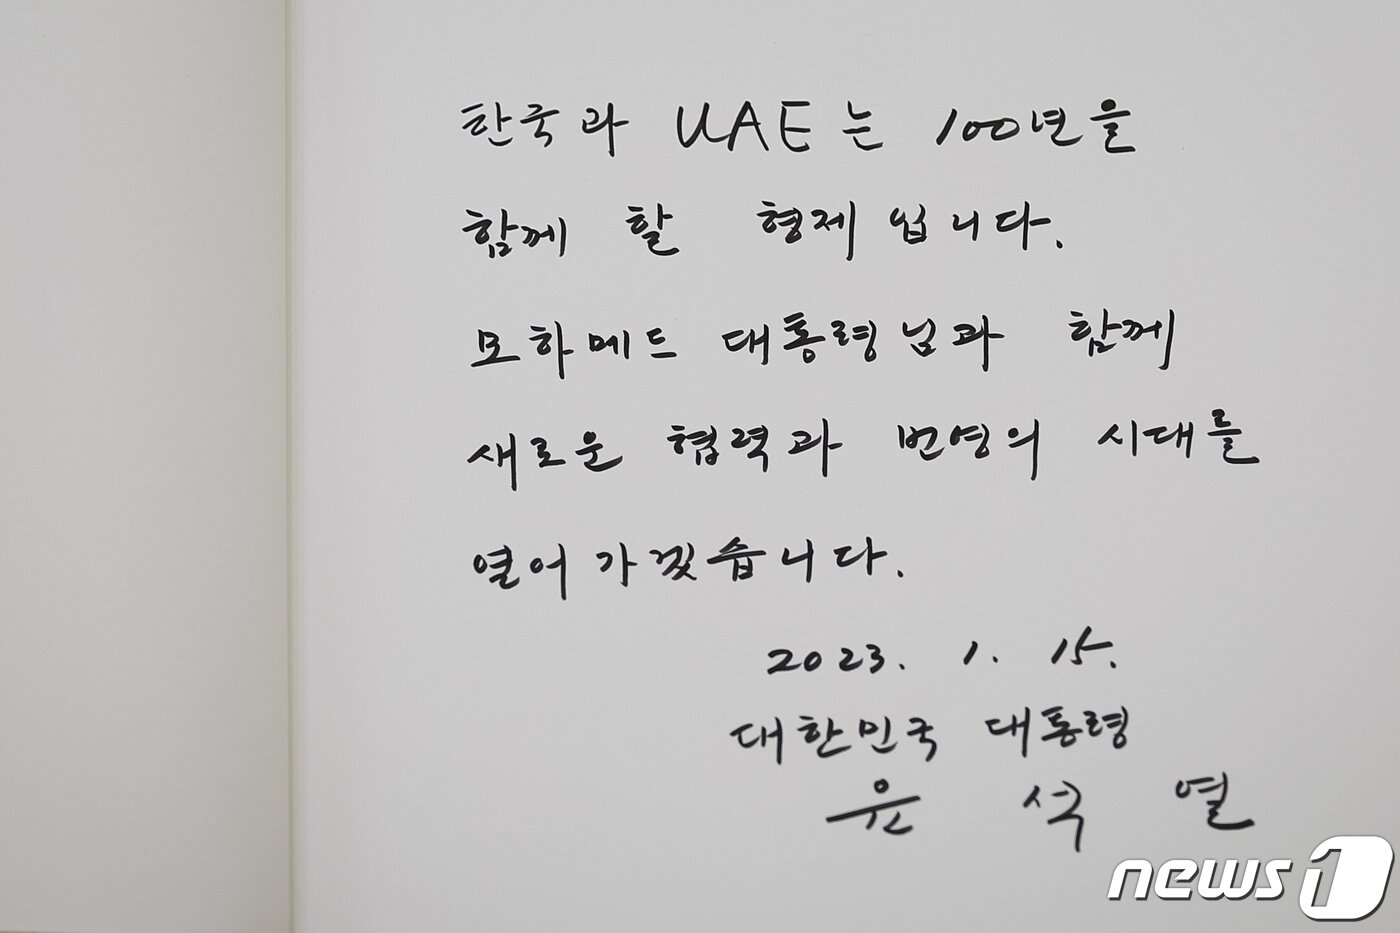 한국과 UAE는 100년을
함께 할 형제입니다.
모하메드 대통령님과 함께
새로운 협력과 번영의 시대를
열어가겠습니다.
2023. 1. 15.
대한민국 대통령
윤 석 열
news1